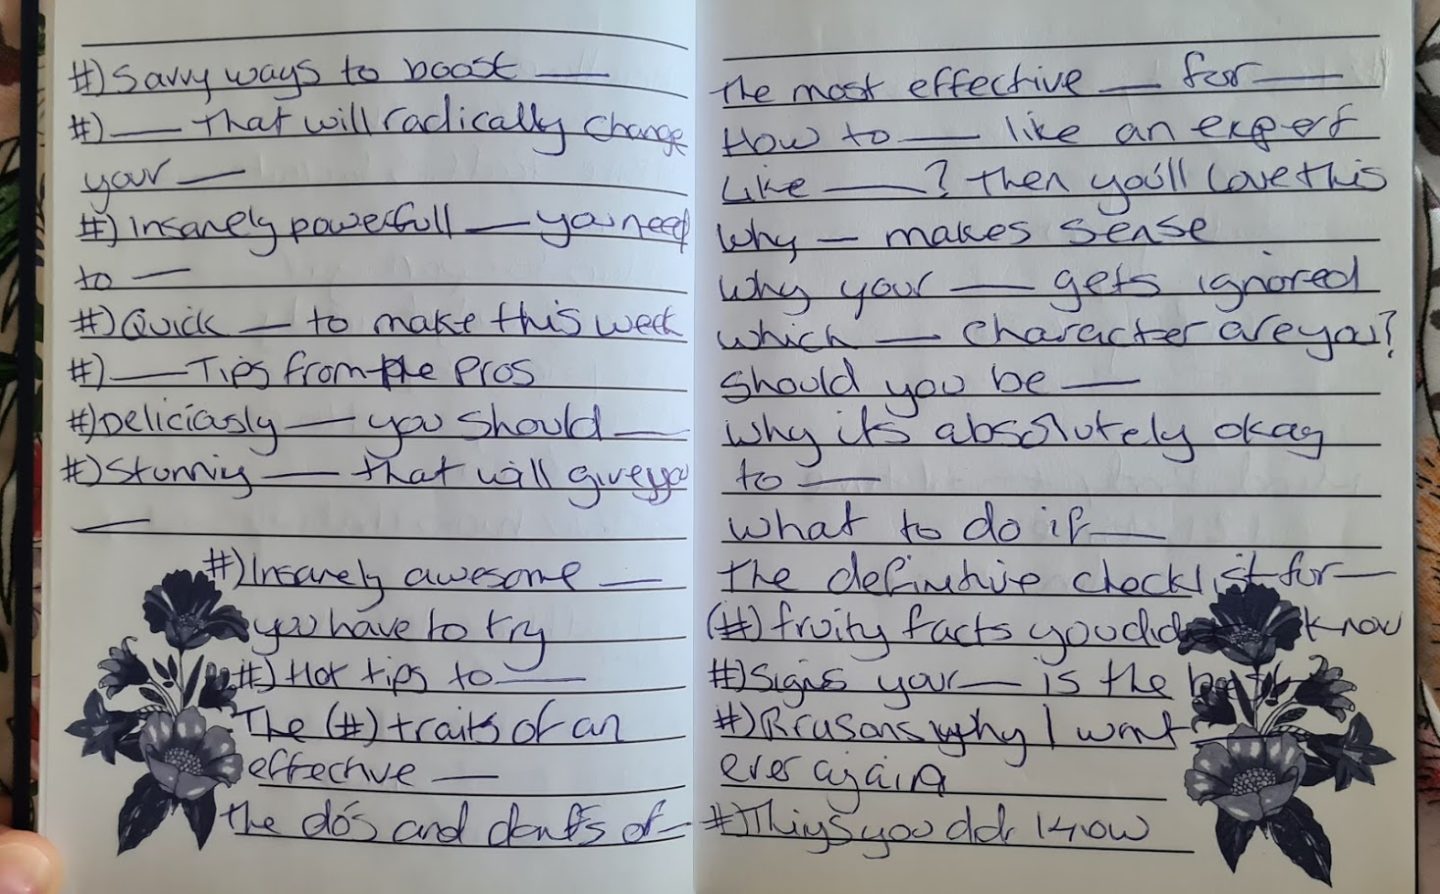 #) Savvy ways to boost —
#) — That will radically change
your —
#) Insanely powerfull — you need
to —
#) Quick — to make this week
#) — Tips from the Pros
#) Deliciasly — you should —
#) Stunnig — that will give you
—
#) Insanely awesome —
you have to try
#) Hot tips to —
The (#) traits of an
effective —
The do's and dont's of —
The most effective — for —
How to — like an expert
Like — ? Then you'll Love this
Why — makes sense
Why your — gets ignored
Which — character are you?
Should you be —
Why its absolutely okay
to —
What to do if —
The definitive checklist for —
(#) fruity facts you did know
#) Signs your — is the
#) Reasons why I wont
ever again
#) Things you did know